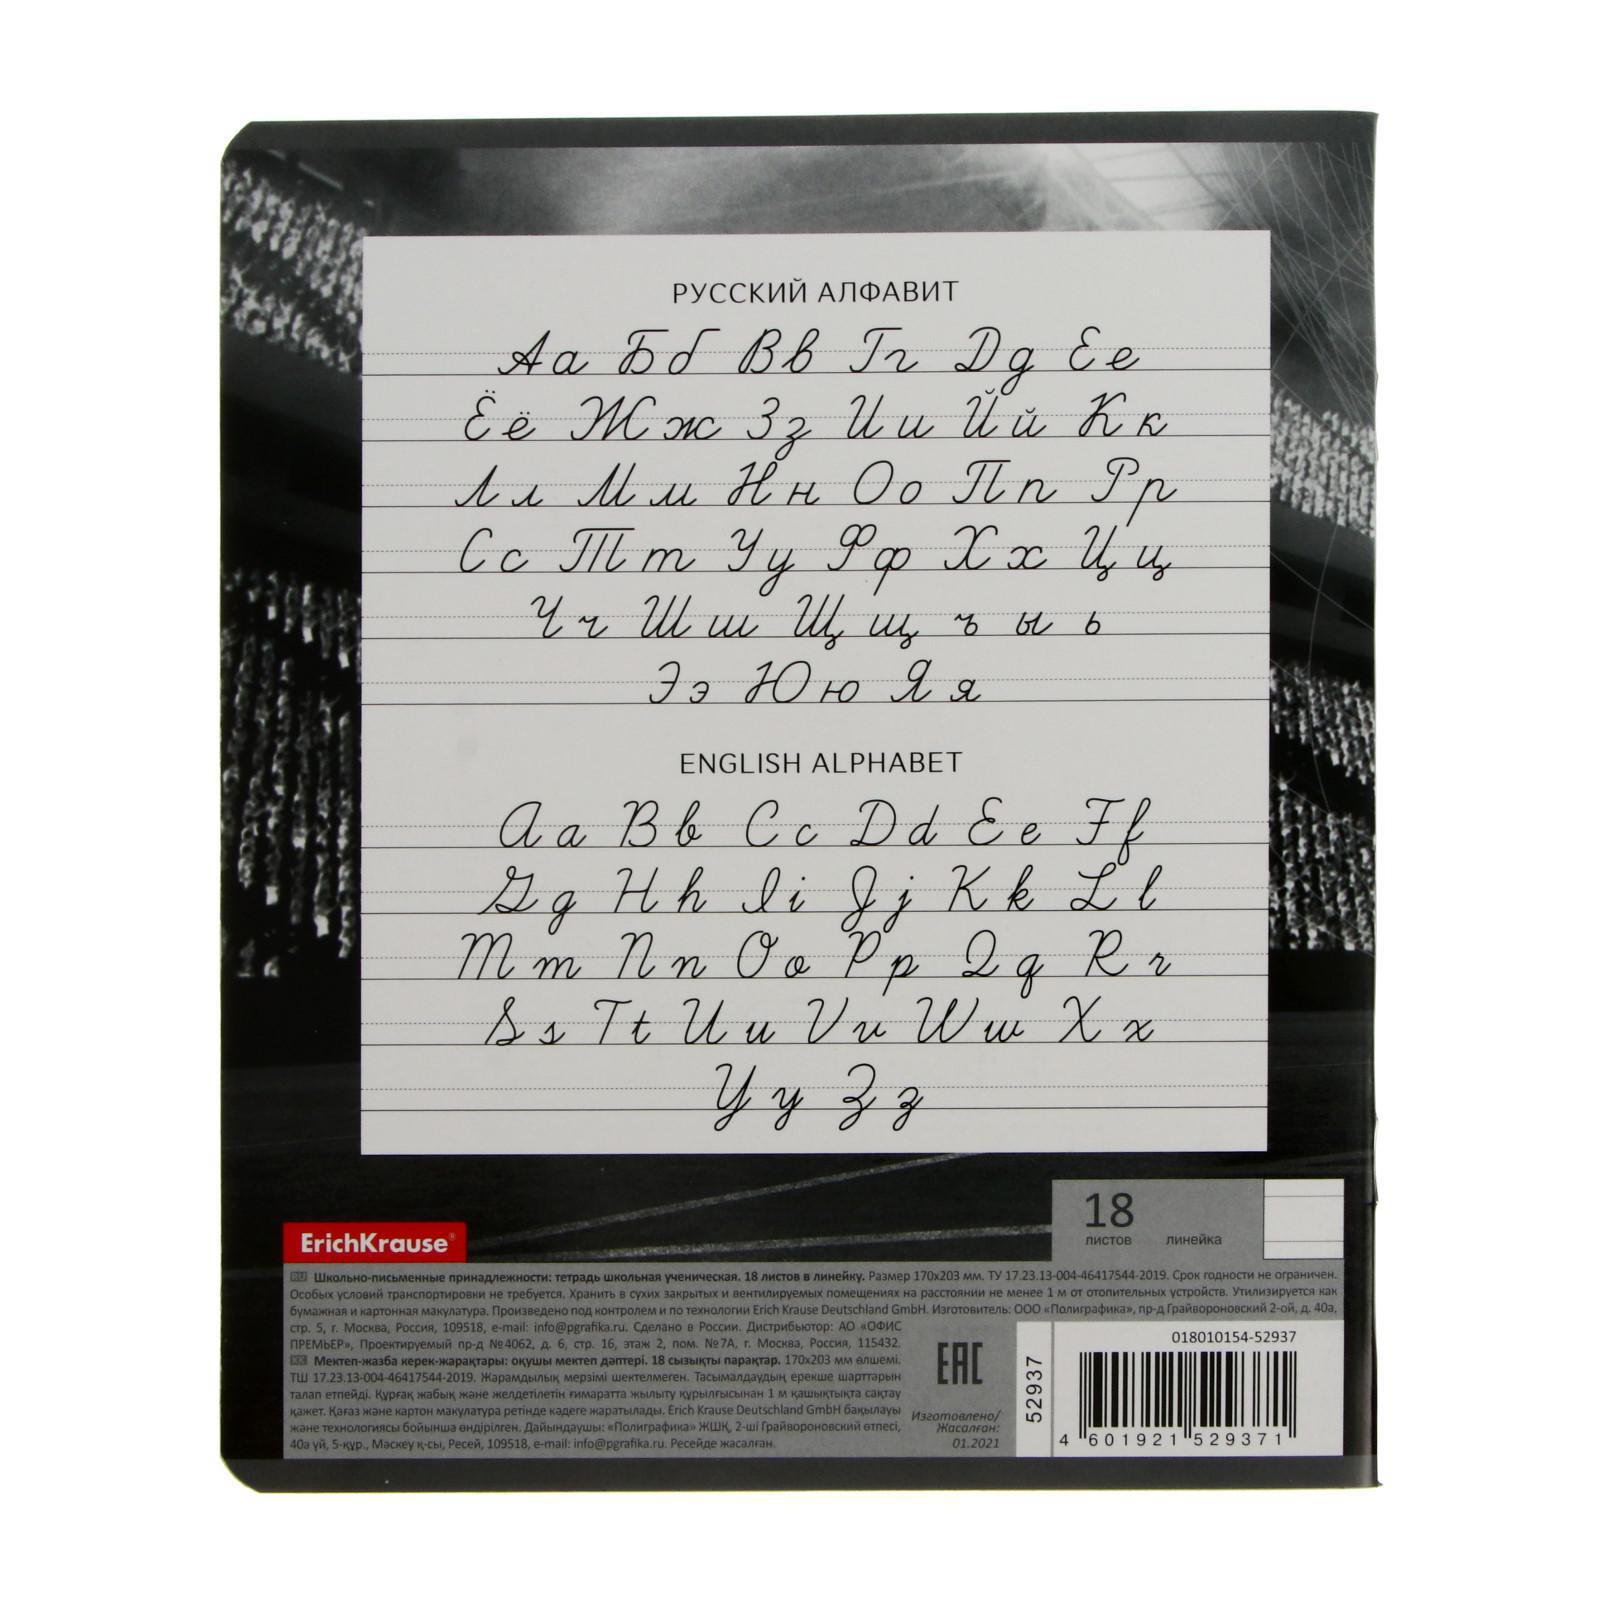 РУССКИЙ АЛФАВИТ
Аа Бб Вв Гг Дд Ее
Ёё Жж Зз Ии Йй Кк
Лл Мм Нн Оо Пп Рр
Сс Тт Уу Фф Хх Цц
Чч Шш Щщ ъ ы ь
Ээ Юю Яя
ENGLISH ALPHABET
Aa Bb Cc Dd Ee Ff
Gg Hh Ii Jj Kk Ll
Mm Nn Oo Pp Qq Rr
Ss Tt Uu Vv Ww Xx
Yy Zz
18
листов линейка
ErichKrause®
RU Школьно-письменные принадлежности: тетрадь школьная ученическая. 18 листов в линейку. Размер 170х203 мм. ТУ 17.23.13-004-46417544-2019. Срок годности не ограничен.
Особых условий транспортировки не требуется. Хранить в сухих закрытых и вентилируемых помещениях на расстоянии не менее 1 м от отопительных устройств. Утилизируется как
бумажная и картонная макулатура. Произведено под контролем и по технологии Erich Krause Deutschland GmbH. Изготовитель: ООО «Полиграфика», пр-д Грайвороновский 2-ой, д. 40а,
стр. 5, г. Москва, Россия, 109518, e-mail: info@pgrafika.ru. Сделано в России. Дистрибьютор: АО «ОФИС
ПРЕМЬЕР», Проектируемый пр-д №4062, д. 6, стр. 16, этаж 2, пом. №7А, г. Москва, Россия, 115432.
KK Мектеп-жазба керек-жарақтары: оқушы мектеп дәптері. 18 сызықты парақтар. 170х203 мм өлшемі.
ТШ 17.23.13-004-46417544-2019. Жарамдылық мерзімі шектелмеген. Тасымалдаудың ерекше шарттарын
талап етпейді. Құрғақ жабық және желдетілетін ғимаратта жылыту құрылғысынан 1 м қашықтықта сақтау
қажет. Қағаз және картон макулатура ретінде кәдеге жаратылады. Erich Krause Deutschland GmbH бақылауы
және технологиясы бойынша өндірілген. Дайындаушы: «Полиграфика» ЖШҚ, 2-ші Грайвороновский өтпесі,
40а үй, 5-құр., Мәскеу қ-сы, Ресей, 109518, e-mail: info@pgrafika.ru. Ресейде жасалған.
EAC
Изготовлено/
Жасалған:
01.2021
52937
018010154-52937
4 601921 529371